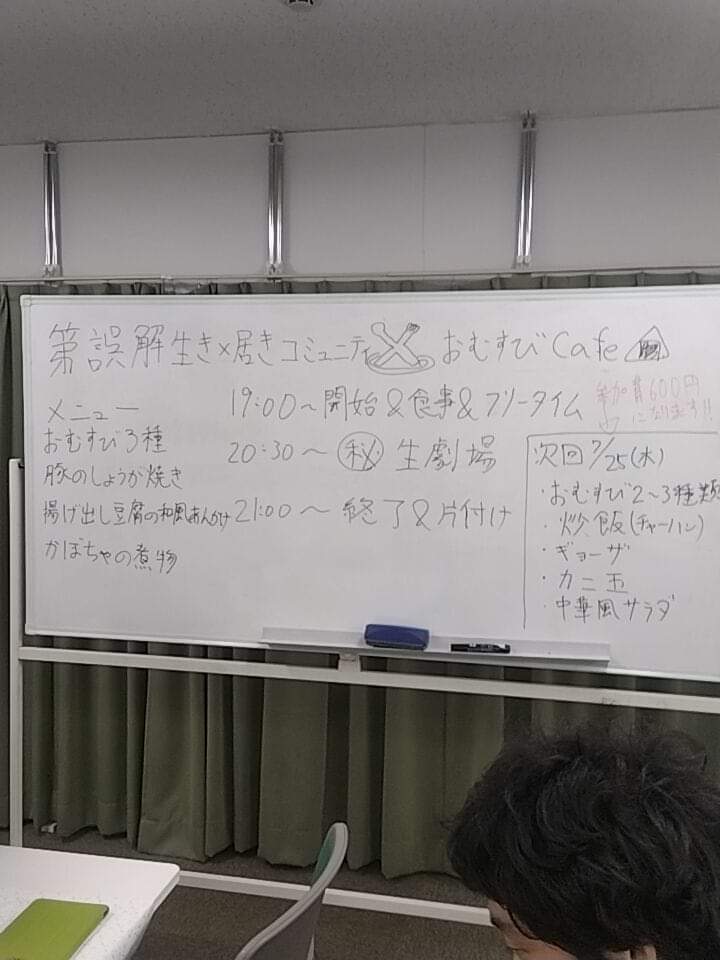 第誤解生き×居きコミュニティ×おむすびCafe
メニュー
おむすび3種
豚のしょうが焼き
揚げ出し豆腐の和風あんかけ
かぼちゃの煮物
19:00～開始&食事&フリータイム
20:30～㊙生劇場
21:00～終了&片付け
参加費600円
になります!!
次回7/25(水)
・おむすび2～3種類
・炒飯(チャーハン)
・ギョーザ
・カニ玉
・中華風サラダ